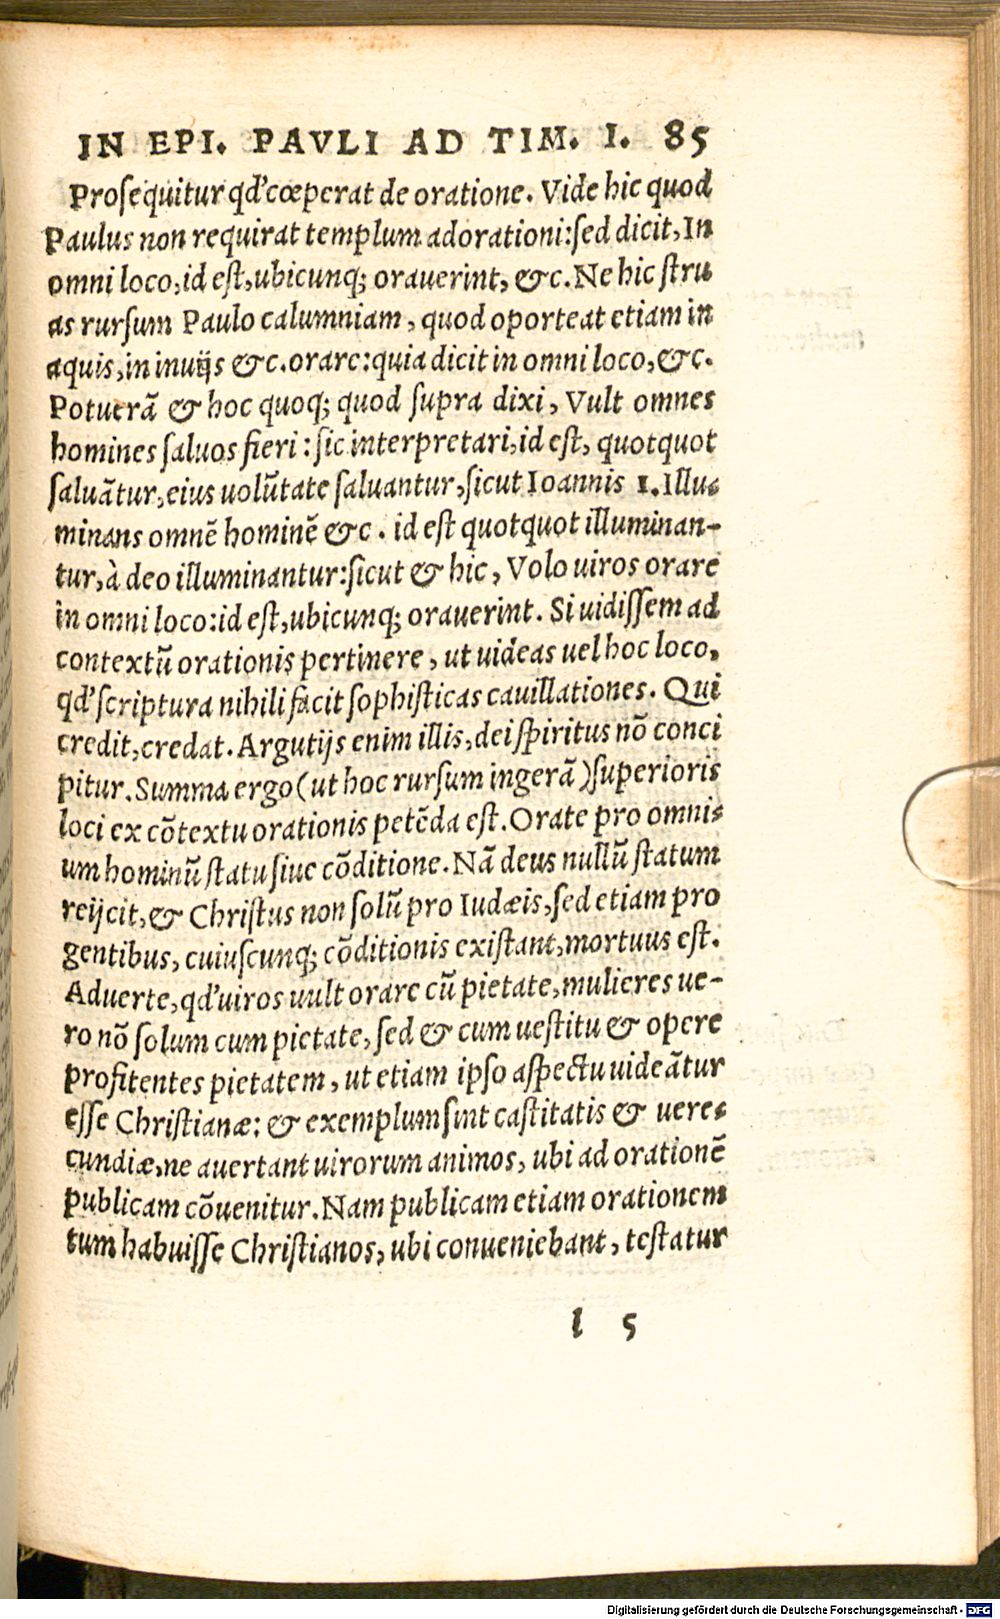 IN EPI. PAVLI AD TIM. I. 85
Prosequitur qd' cœperat de oratione. Vide hic quod
Paulus non requirat templum adorationi: sed dicit, In
omni loco, id est, ubicunq; orauerint, &c. Ne hic stru
as rursum Paulo calumniam, quod oporteat etiam in
aquis, in inuijs &c. orare: quia dicit in omni loco, &c.
Potuerã & hoc quoq; quod supra dixi, Vult omnes
homines saluos fieri: sic interpretari, id est, quotquot
saluãtur, eius uolũtate saluantur, sicut Ioannis 1. Illu-
minans omnẽ hominẽ &c. id est quotquot illuminan-
tur, à deo illuminantur: sicut & hic, Volo uiros orare
in omni loco: id est, ubicunq; orauerint. Si uidissem ad
contextũ orationis pertinere, ut uideas uel hoc loco,
qd' scriptura nihili facit sophisticas cauillationes. Qui
credit, credat. Argutijs enim illis, dei spiritus nõ conci
pitur. Summa ergo (ut hoc rursum ingerã) superioris
loci ex cõtextu orationis petẽda est. Orate pro omni-
um hominũ statu siue cõditione. Nã deus nullũ statum
reijcit, & Christus non solũ pro Iudæis, sed etiam pro
gentibus, cuiuscunq; cõditionis existant, mortuus est.
Aduerte, qd' uiros uult orare cũ pietate, mulieres ue-
ro nõ solum cum pietate, sed & cum uestitu & opere
profitentes pietatem, ut etiam ipso aspectu uideãtur
esse Christianæ: & exemplum sint castitatis & uere-
cundiæ, ne auertant uirorum animos, ubi ad orationẽ
publicam cõuenitur. Nam publicam etiam orationem
tum habuisse Christianos, ubi conueniebant, testatur
l 5
Digitalisierung gefördert durch die Deutsche Forschungsgemeinschaft - DFG